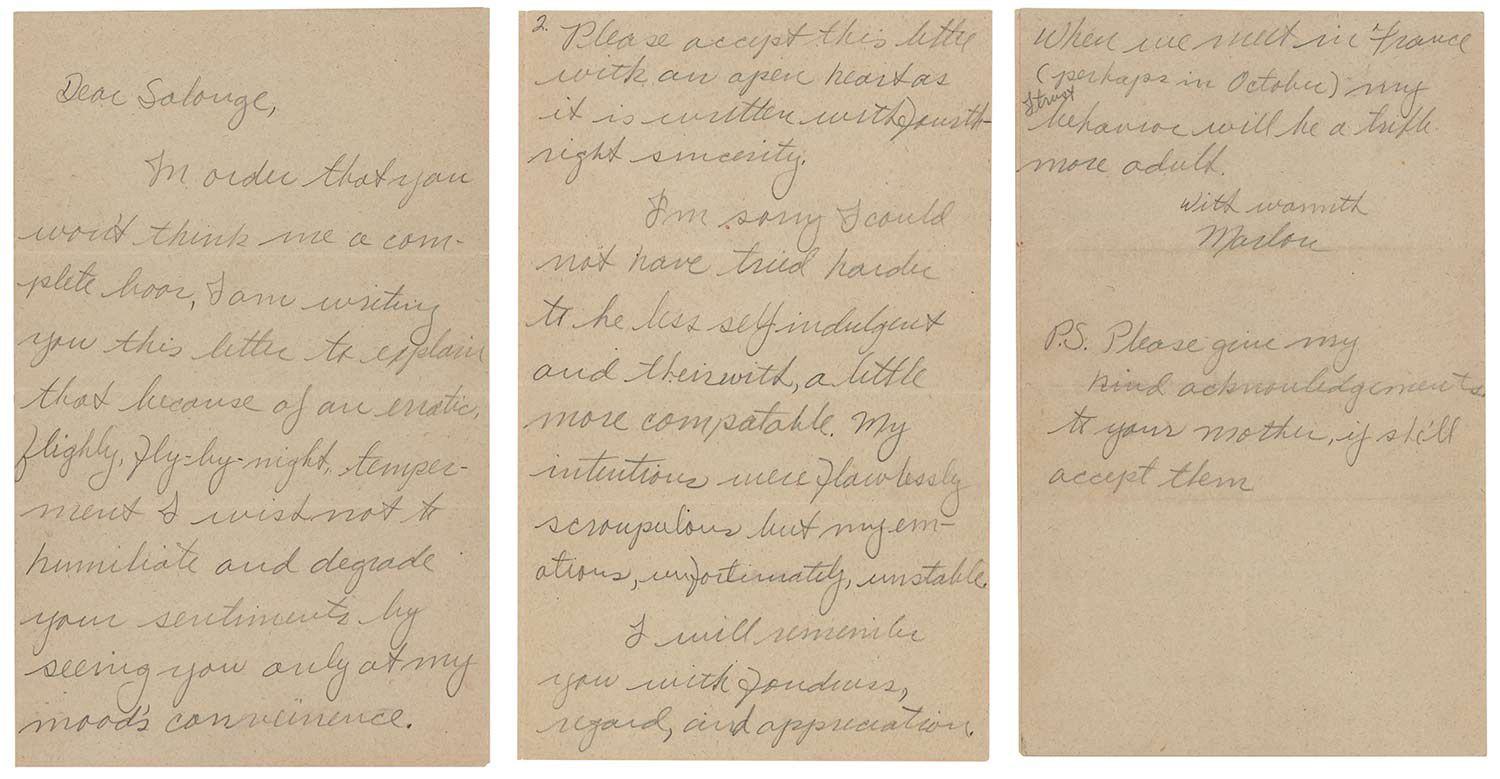 Dear Solange,
In order that you
won't think me a com-
plete boor, I am writing
you this letter to explain
that because of an erratic,
flighly, fly-by-night, temper-
ment I wish not to
humiliate and degrade
your sentiments by
seeing you only at my
mood's conveinence.
2. Please accept this letter
with an open heart as
it is written with forth-
right sincerity.
I'm sorry I could
not have tried harder
to be less self indulgent
and theirwith, a little
more compatable. My
intentions were flawlessly
scroupulous but my em-
otions, unfortunately, unstable.
I will remember
you with fondness,
regard, and appreciation.
When we meet in France
(perhaps in October) my
I trust
behavior will be a trifle
more adult.
With warmth
Marlon
P.S. Please give my
kind acknowledgements
to your mother, if she'll
accept them